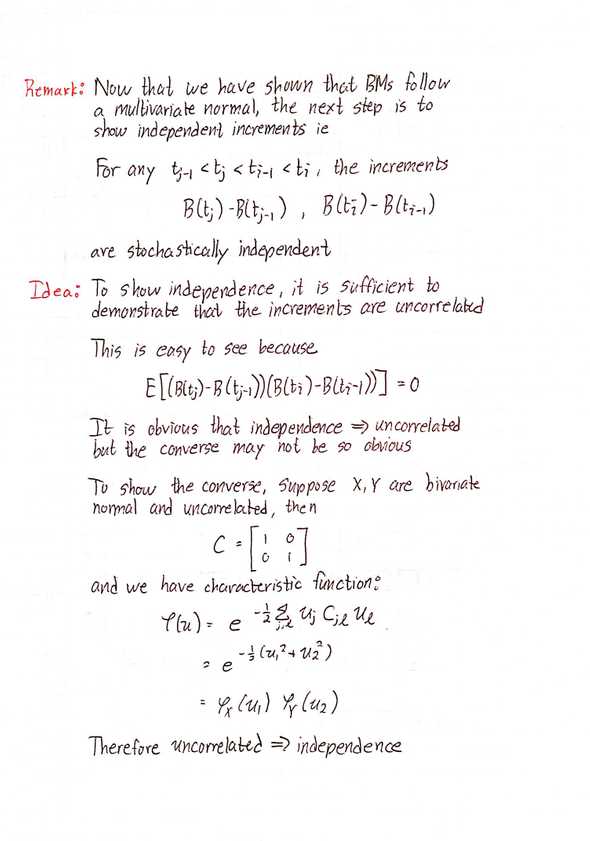 Remark: Now that we have shown that BMs follow
a multivariate normal, the next step is to
show independent increments ie
For any t_{j-1} < t_j < t_{i-1} < t_i, the increments
B(t_j) - B(t_{j-1}), B(t_i) - B(t_{i-1})
are stochastically independent
Idea: To show independence, it is sufficient to
demonstrate that the increments are uncorrelated
This is easy to see because
E[(B(t_j) - B(t_{j-1}))(B(t_i) - B(t_{i-1}))] = 0
It is obvious that independence ⇒ uncorrelated
but the converse may not be so obvious
To show the converse, suppose X, Y are bivariate
normal and uncorrelated, then
C = [1 0
0 1]
and we have characteristic function:
φ(u) = e^{-1/2 Σ_{j,l} u_j C_{jl} u_l}
= e^{-1/2 (u_1^2 + u_2^2)}
= φ_X(u_1) φ_Y(u_2)
Therefore uncorrelated ⇒ independence